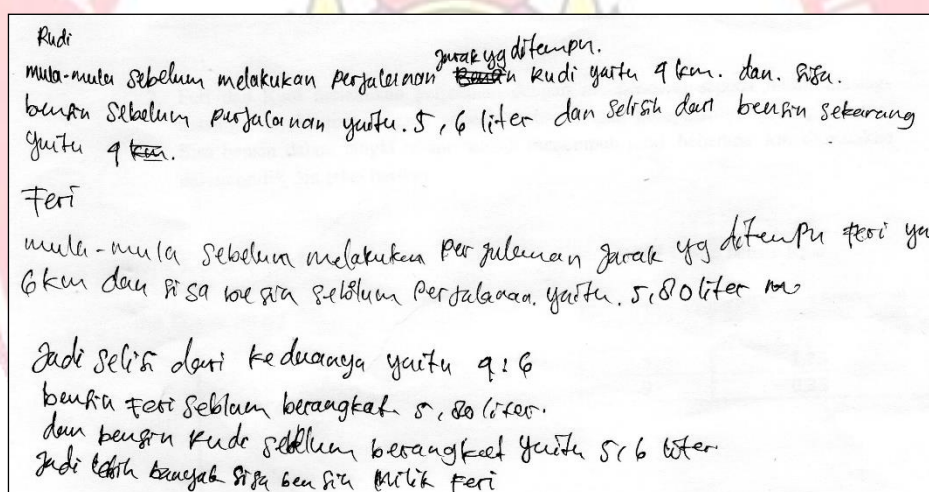 Rudi
mula-mula sebelum melakukan perjalanan jarak yg ditempu. Rudi yaitu 4 km. dan. sisa.
bensin sebelum perjalanan yaitu. 5,6 liter dan selisih dari bensin sekarang
yaitu 4 km.
Feri
mula-mula sebelum melakukan perjalanan jarak yg ditempu Feri ya
6 km dan sisa bensin sebelum perjalanan. yaitu. 5,80 liter
Jadi selisi dari keduanya yaitu 4:6
bensin Feri seblum berangkat 5,80 liter.
dan bensin Rudi sebelum berangkat yaitu 5,6 liter
Jadi lebih banyak sisa bensin milik Feri